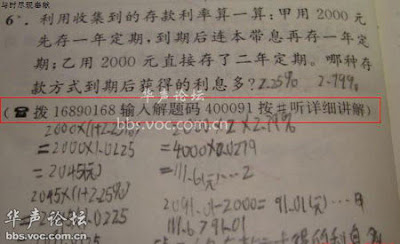 与时尽现幽默
6*. 利用收集到的存款利率算一算：甲用 2000 元
先存一年定期，到期后连本带息再存一年定
期；乙用 2000 元直接存了二年定期。哪种存
款方式到期后获得的利息多？2.25% 2.79%
(☎拨 16890168 输入解题码 400091 按＃听详细讲解)
华声论坛
bbs.voc.com.cn
2000×(1+2.25%)
×2.79%
=2000×1.0225
=4000×0.0279
=2045(元)
=111.6(元)...乙
2045×(1+2.25%)
2091.01-2000=91.01(元)...甲
111.6>91.01
华声论坛
bbs.voc.com.cn